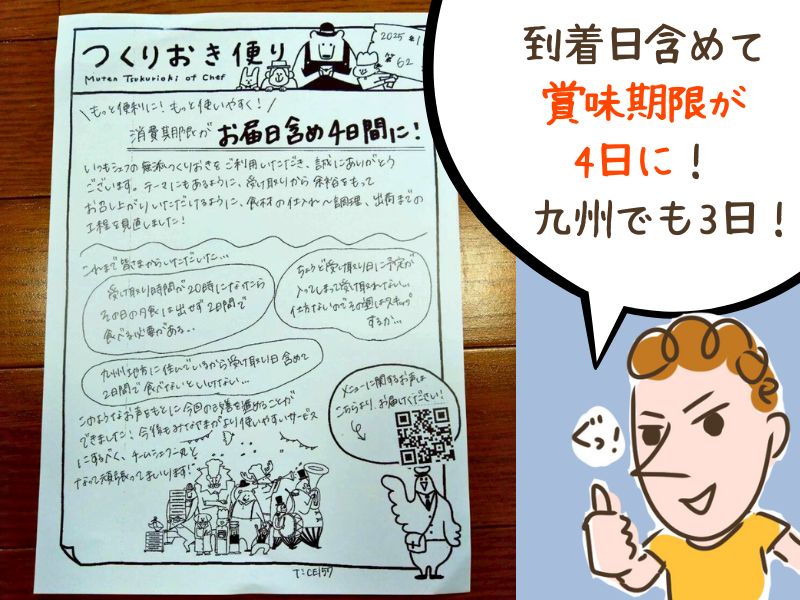 つくりおき便り
Muten Tsukurioki of Chef
2025年1
第62
もっと便利に！もっと使いやすく！
消費期限が お届日含め4日間に！
いつもシェフの無添つくりおきをご利用いただき、誠にありがとう
ございます。テーマにもあるように、受け取りから余裕をもって
お召し上がりいただけるように、食材の仕入れ〜調理、出荷までの
工程を見直しました！
これまで皆さまからいただいた…
受け取り時間が20時になったら
その日の夕食には出せず2日間で
食べる必要がある‥
ちょうど受け取り日に予定が
入ってしまって受け取れない…
仕方ないのでその週はスキップ
するか…
九州地方に住んでいるから受け取り日含めて
2日間で食べないといけない…
このようなお声をもとに今回の改善を進めることが
できました！今後もみなさまがより使いやすいサービス
にするべく、チームシェフ一丸と
なって頑張ってまいります！
メニューに関するお声は
こちらより、お届けください！
到着日含めて
賞味期限が
4日に！
九州でも3日！
ぐっ！